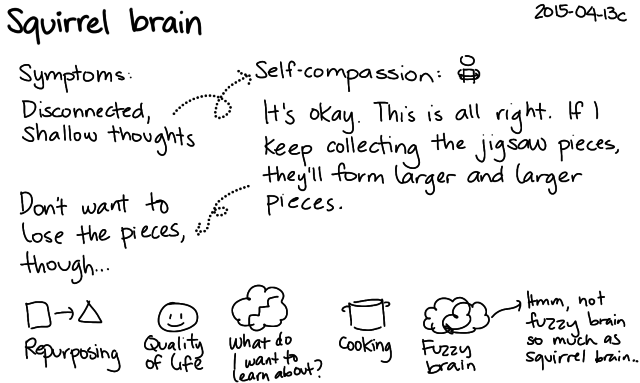 Squirrel brain
2015-04-13c
Symptoms:
Disconnected,
shallow thoughts
Self-compassion:
It's okay. This is all right. If I
keep collecting the jigsaw pieces,
they'll form larger and larger
pieces.
Don't want to
lose the pieces,
though...
Repurposing
Quality
of life
What do
I want to
learn about?
Cooking
Fuzzy
brain
Hmm, not
fuzzy brain
so much as
squirrel brain..